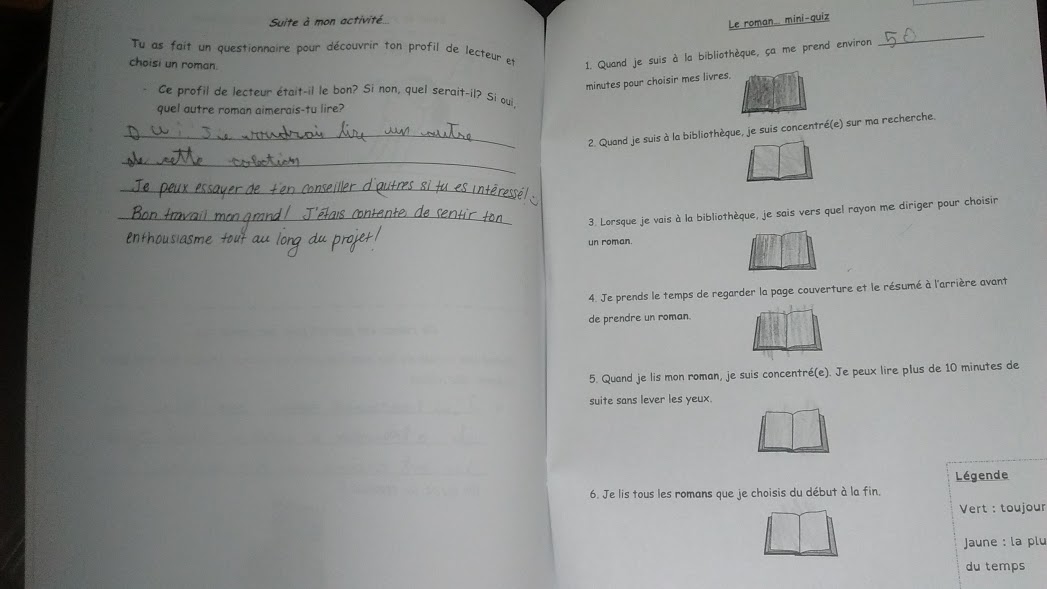 Suite à mon activité...
Tu as fait un questionnaire pour découvrir ton profil de lecteur et
choisi un roman.
- Ce profil de lecteur était-il le bon? Si non, quel serait-il? Si oui,
quel autre roman aimerais-tu lire?
Oui Je voudrais lire un autre
de cette colection
Je peux essayer de t'en conseiller d'autres si tu es intéressé! ☺
Bon travail mon grand! J'étais contente de sentir ton
enthousiasme tout au long du projet!
Le roman... mini-quiz
1. Quand je suis à la bibliothèque, ça me prend environ 50
minutes pour choisir mes livres.
2. Quand je suis à la bibliothèque, je suis concentré(e) sur ma recherche.
3. Lorsque je vais à la bibliothèque, je sais vers quel rayon me diriger pour choisir
un roman.
4. Je prends le temps de regarder la page couverture et le résumé à l'arrière avant
de prendre un roman.
5. Quand je lis mon roman, je suis concentré(e). Je peux lire plus de 10 minutes de
suite sans lever les yeux.
6. Je lis tous les romans que je choisis du début à la fin.
Légende
Vert : toujour
Jaune : la plu
du temps